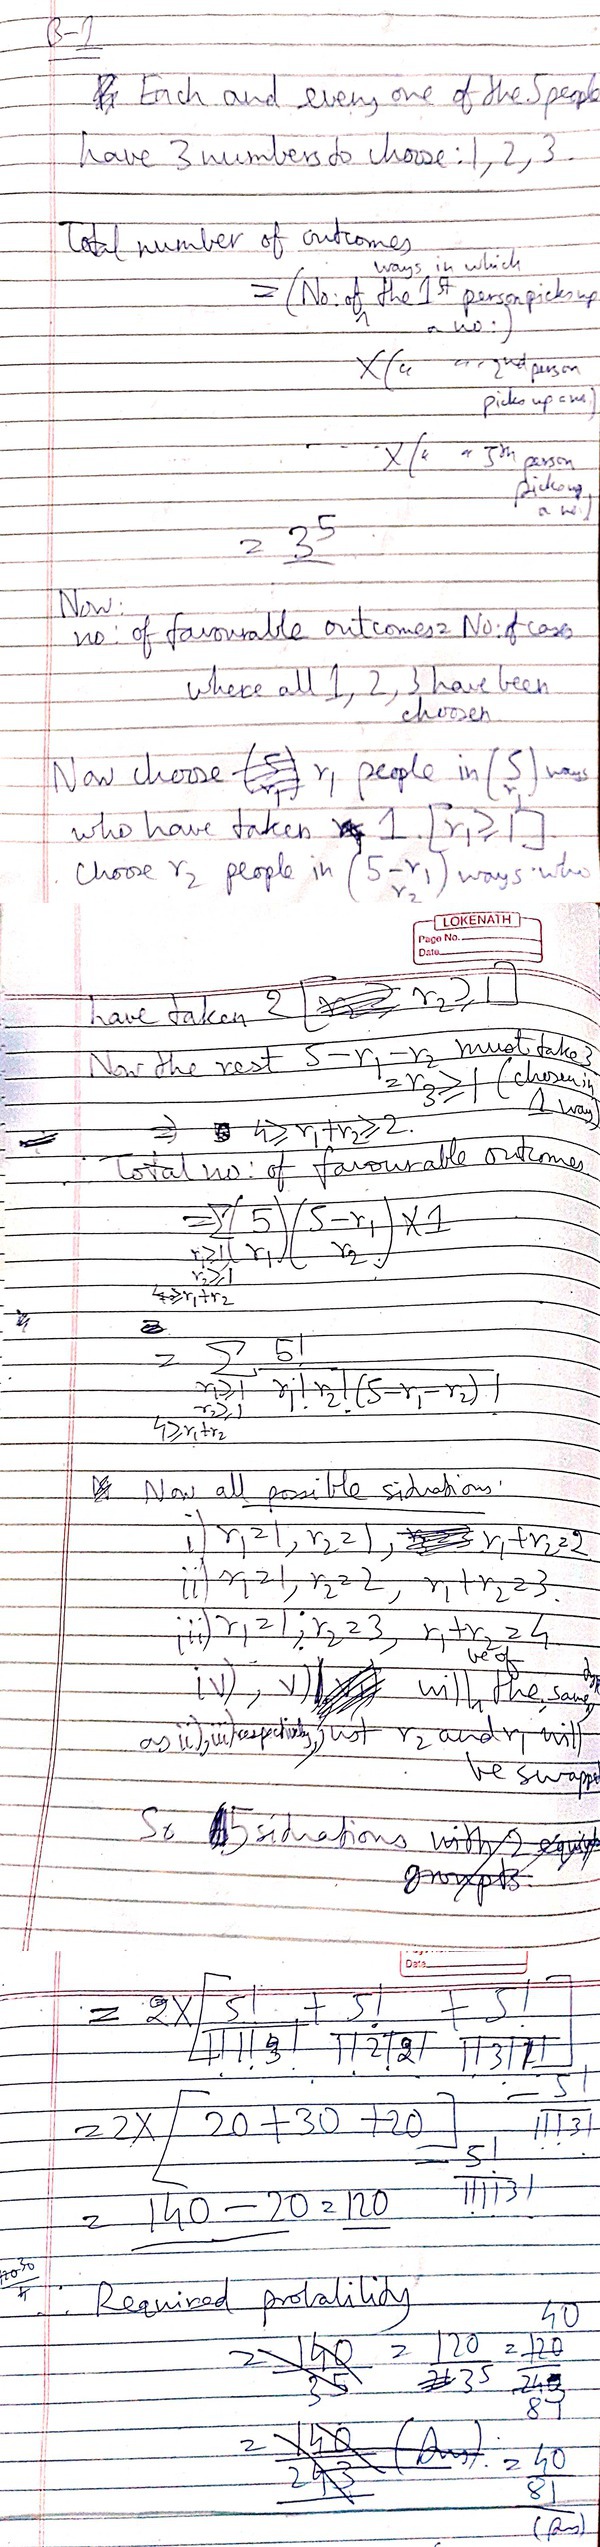 B-1
Each and every one of the 5 people
have 3 numbers to choose: 1, 2, 3.
Total number of outcomes
ways in which
= (No: of the 1st person picks up
a no:)
X (" " 2nd person
picks up a no:)
..... X (" " 5th person
picks up
a no:)
= 3^5
Now:
no: of favourable outcomes = No: of cases
where all 1, 2, 3 have been
choosen
Now choose r₁ people in (5 r₁) ways
who have taken 1. [r₁ ≥ 1]
choose r₂ people in (5-r₁ r₂) ways who
LOKENATH
Page No.
Date
have taken 2 [r₂ ≥ 1]
Now the rest 5-r₁-r₂ must take 3
= r₃ ≥ 1 (chosen in
1 way)
⇒ 4 ≥ r₁+r₂ ≥ 2.
Total no: of favourable outcomes
= Σ (5 r₁) (5-r₁ r₂) X 1
r₁≥1
r₂≥1
4≥r₁+r₂
= Σ 5! / r₁! r₂! (5-r₁-r₂)!
r₁≥1
r₂≥1
4≥r₁+r₂
Now all possible situations:
i) r₁=1, r₂=1, r₁+r₂=2
ii) r₁=1, r₂=2, r₁+r₂=3.
iii) r₁=1, r₂=3, r₁+r₂=4
be of
iv), v) will the same
as ii), iii) respectively, just r₂ and r₁ will
be swapped
So 5 situations with 2
groups
Date
= 2X [5!/1!1!3! + 5!/1!2!2! + 5!/1!3!1!]
- 5!/1!1!3!
= 2X [20+30+20]
- 5!/1!1!3!
= 140 - 20 = 120
∴ Required probability
= 140/3^5 = 120/3^5 = 120/243 40 81
= 140/243 (Ans). = 40/81
(Ans)